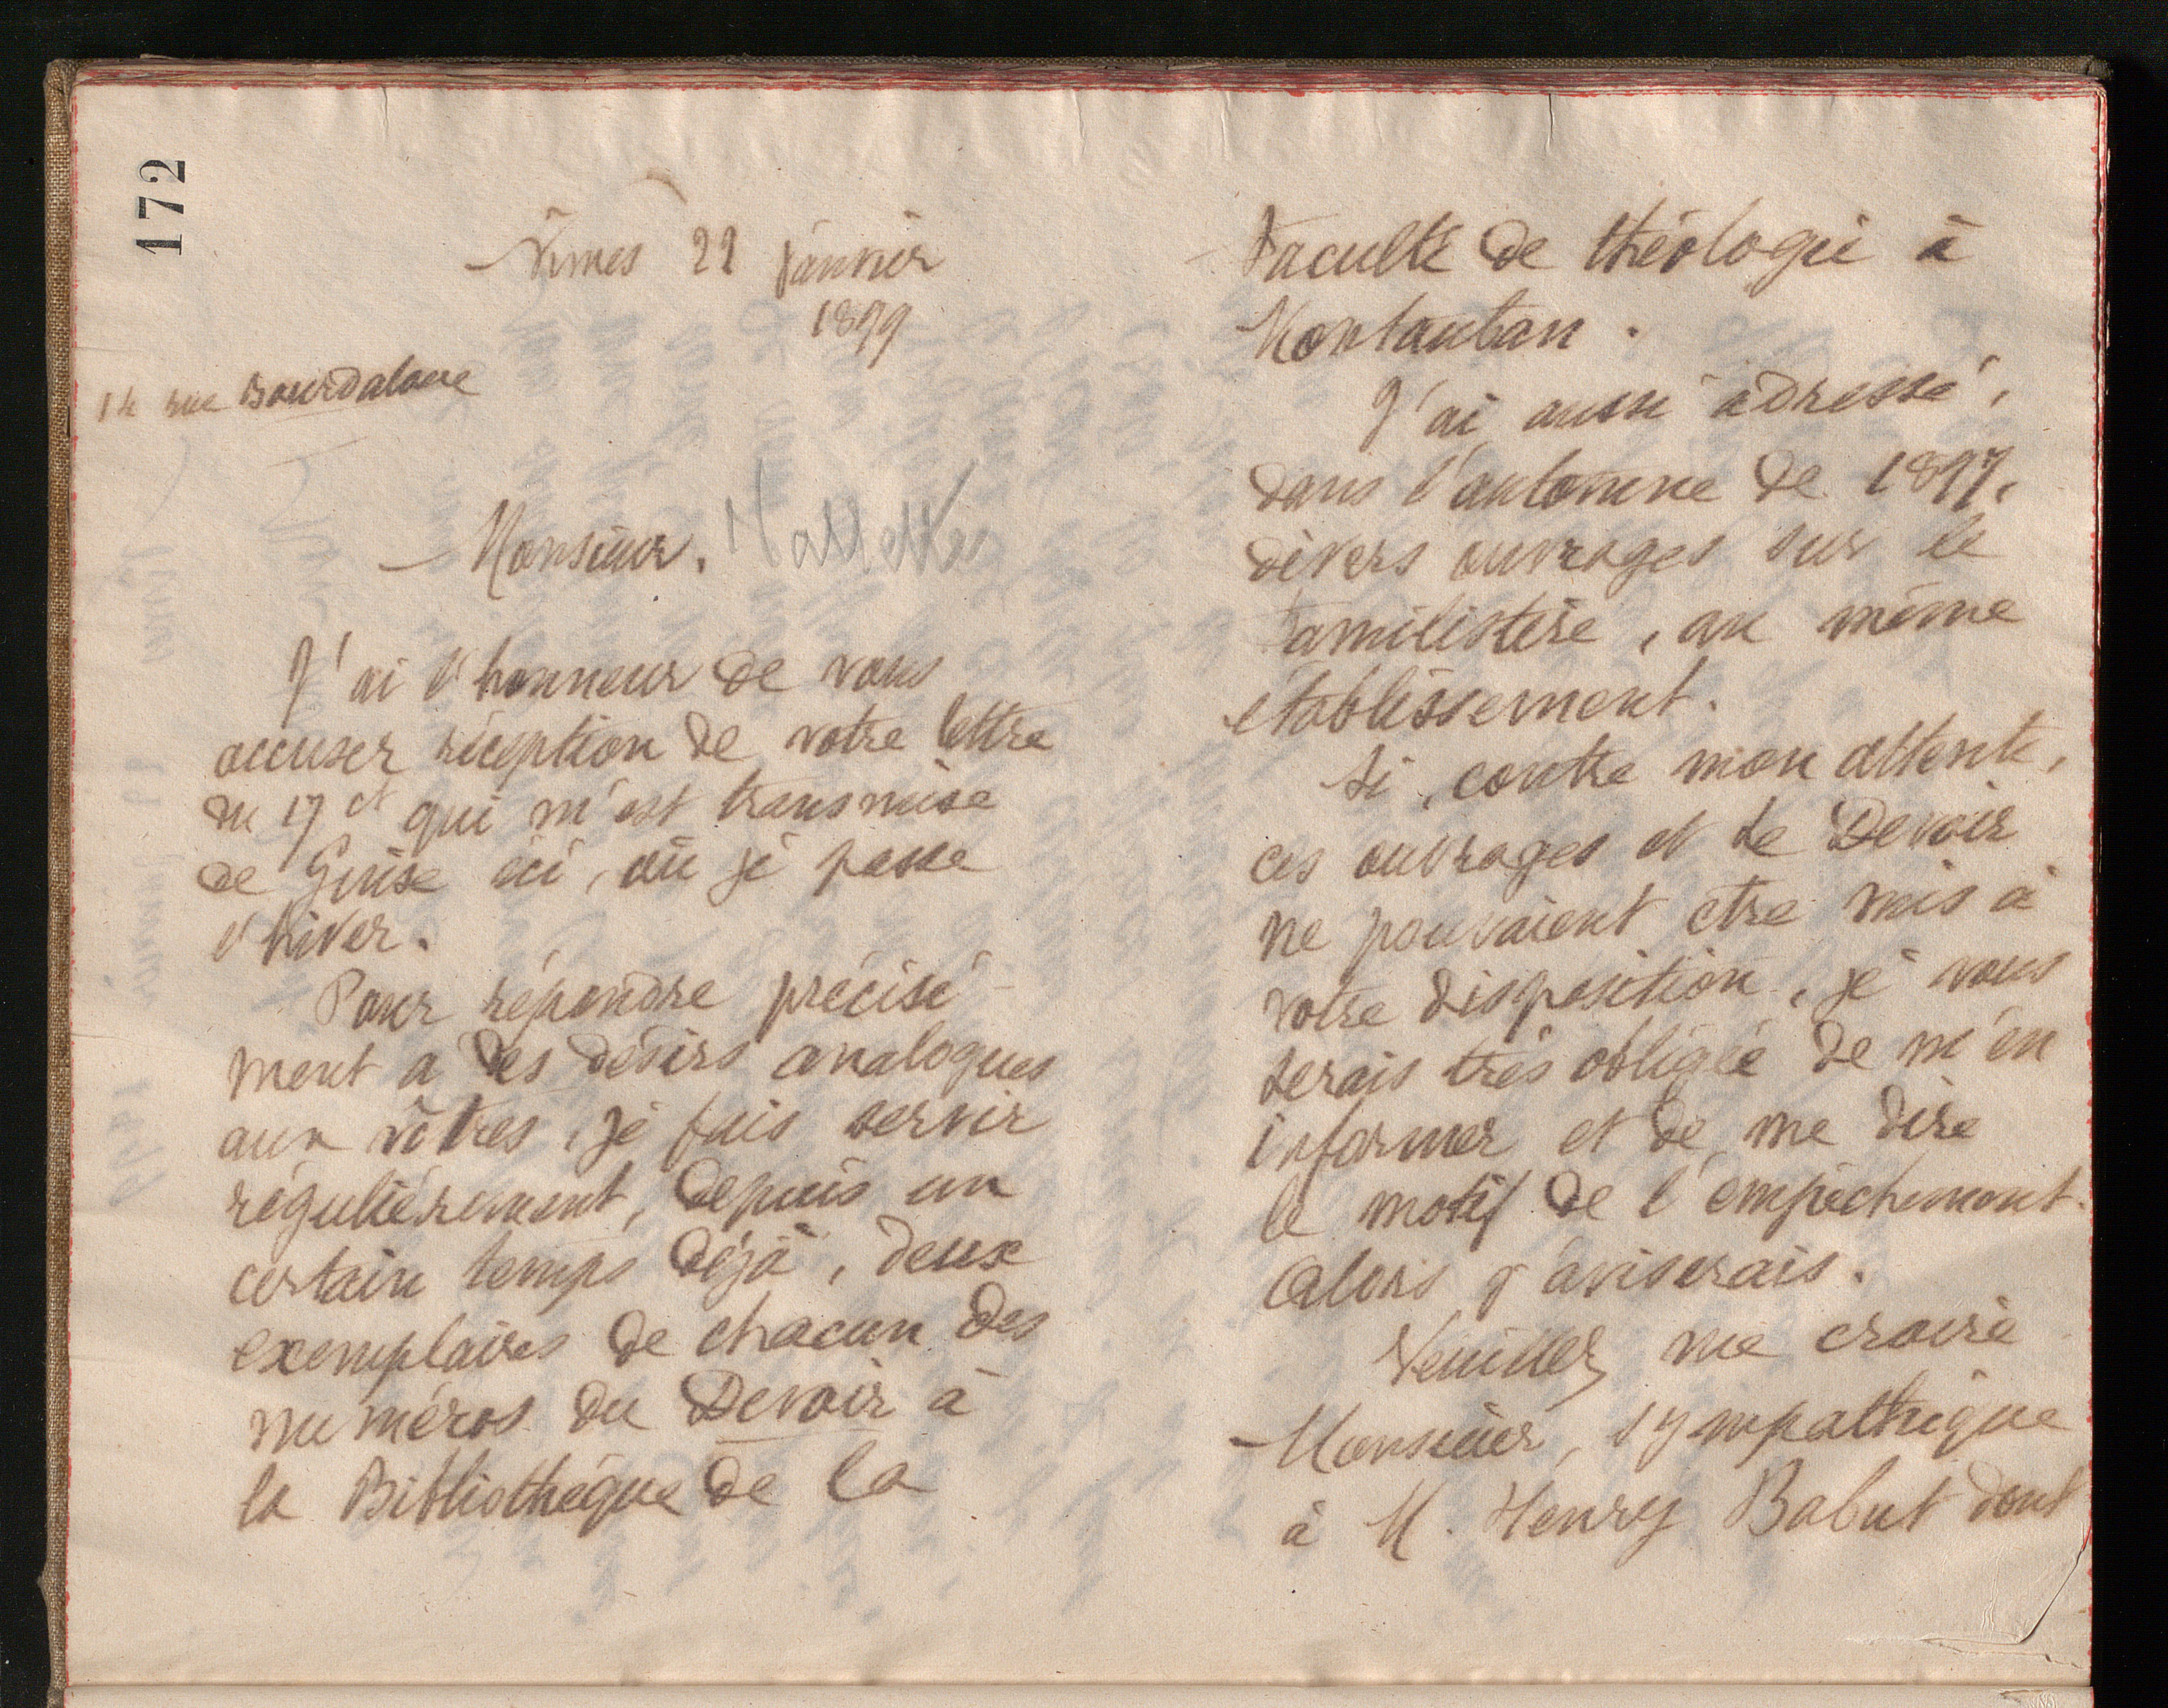 172
Nîmes 22 janvier
1899
14 rue Bourdaloue
Monsieur.
J'ai l'honneur de vous
accuser réception de votre lettre
du 17 ct qui m'est transmise
de Guise ici, où je passe
l'hiver.
Pour répondre précisé-
ment à des désirs analogues
aux vôtres, je fais servir
régulièrement, depuis un
certain temps déjà, deux
exemplaires de chacun des
numéros du Devoir à
la Bibliothèque de la
Faculté de théologie à
Montauban.
J'ai aussi adressé,
dans l'automne de 1897,
divers ouvrages sur le
Familistère, au même
établissement.
Si, contre mon attente,
ces ouvrages et le Devoir
ne pouvaient être mis à
votre disposition, je vous
serais très obligée de m'en
informer et de me dire
le motif de l'empêchement.
Alors j'aviserais.
Veuillez me croire
Monsieur, sympathique
à M. Henry Babut dont